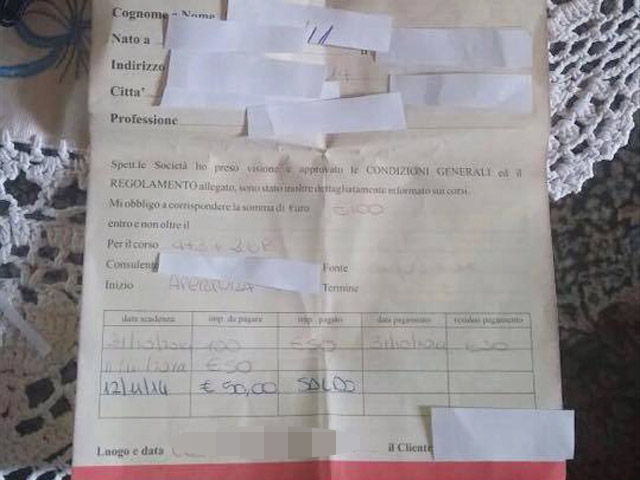 Cognome e Nome
Nato a
Indirizzo
Citta'
Professione
Spett.le Società ho preso visione e approvato le CONDIZIONI GENERALI ed il
REGOLAMENTO allegato, sono stato inoltre dettagliatamente informato sui corsi.
Mi obbligo a corrispondere la somma di €uro €100
entro e non oltre il
Per il corso
Consulente Fonte
Inizio APERTURA Termine
data scadenza imp. da pagare imp. pagato data pagamento residuo pagamento
31/10/2014 100 €50 31/10/2014 €50
€50
12/11/14 €50,00 SALDO
Luogo e data il Cliente